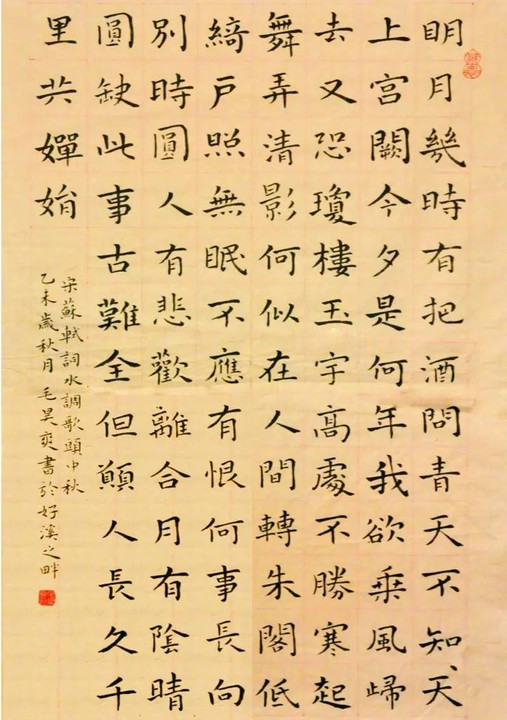 明月幾時有把酒問青天不知天
上宮闕今夕是何年我欲乘風歸
去又恐瓊樓玉宇高處不勝寒起
舞弄清影何似在人間轉朱閣低
綺戶照無眠不應有恨何事長向
別時圓人有悲歡離合月有陰晴
圓缺此事古難全但願人長久千
里共嬋娟
宋蘇軾詞水調歌頭中秋
乙未歲秋月毛昊爽書於好溪之畔